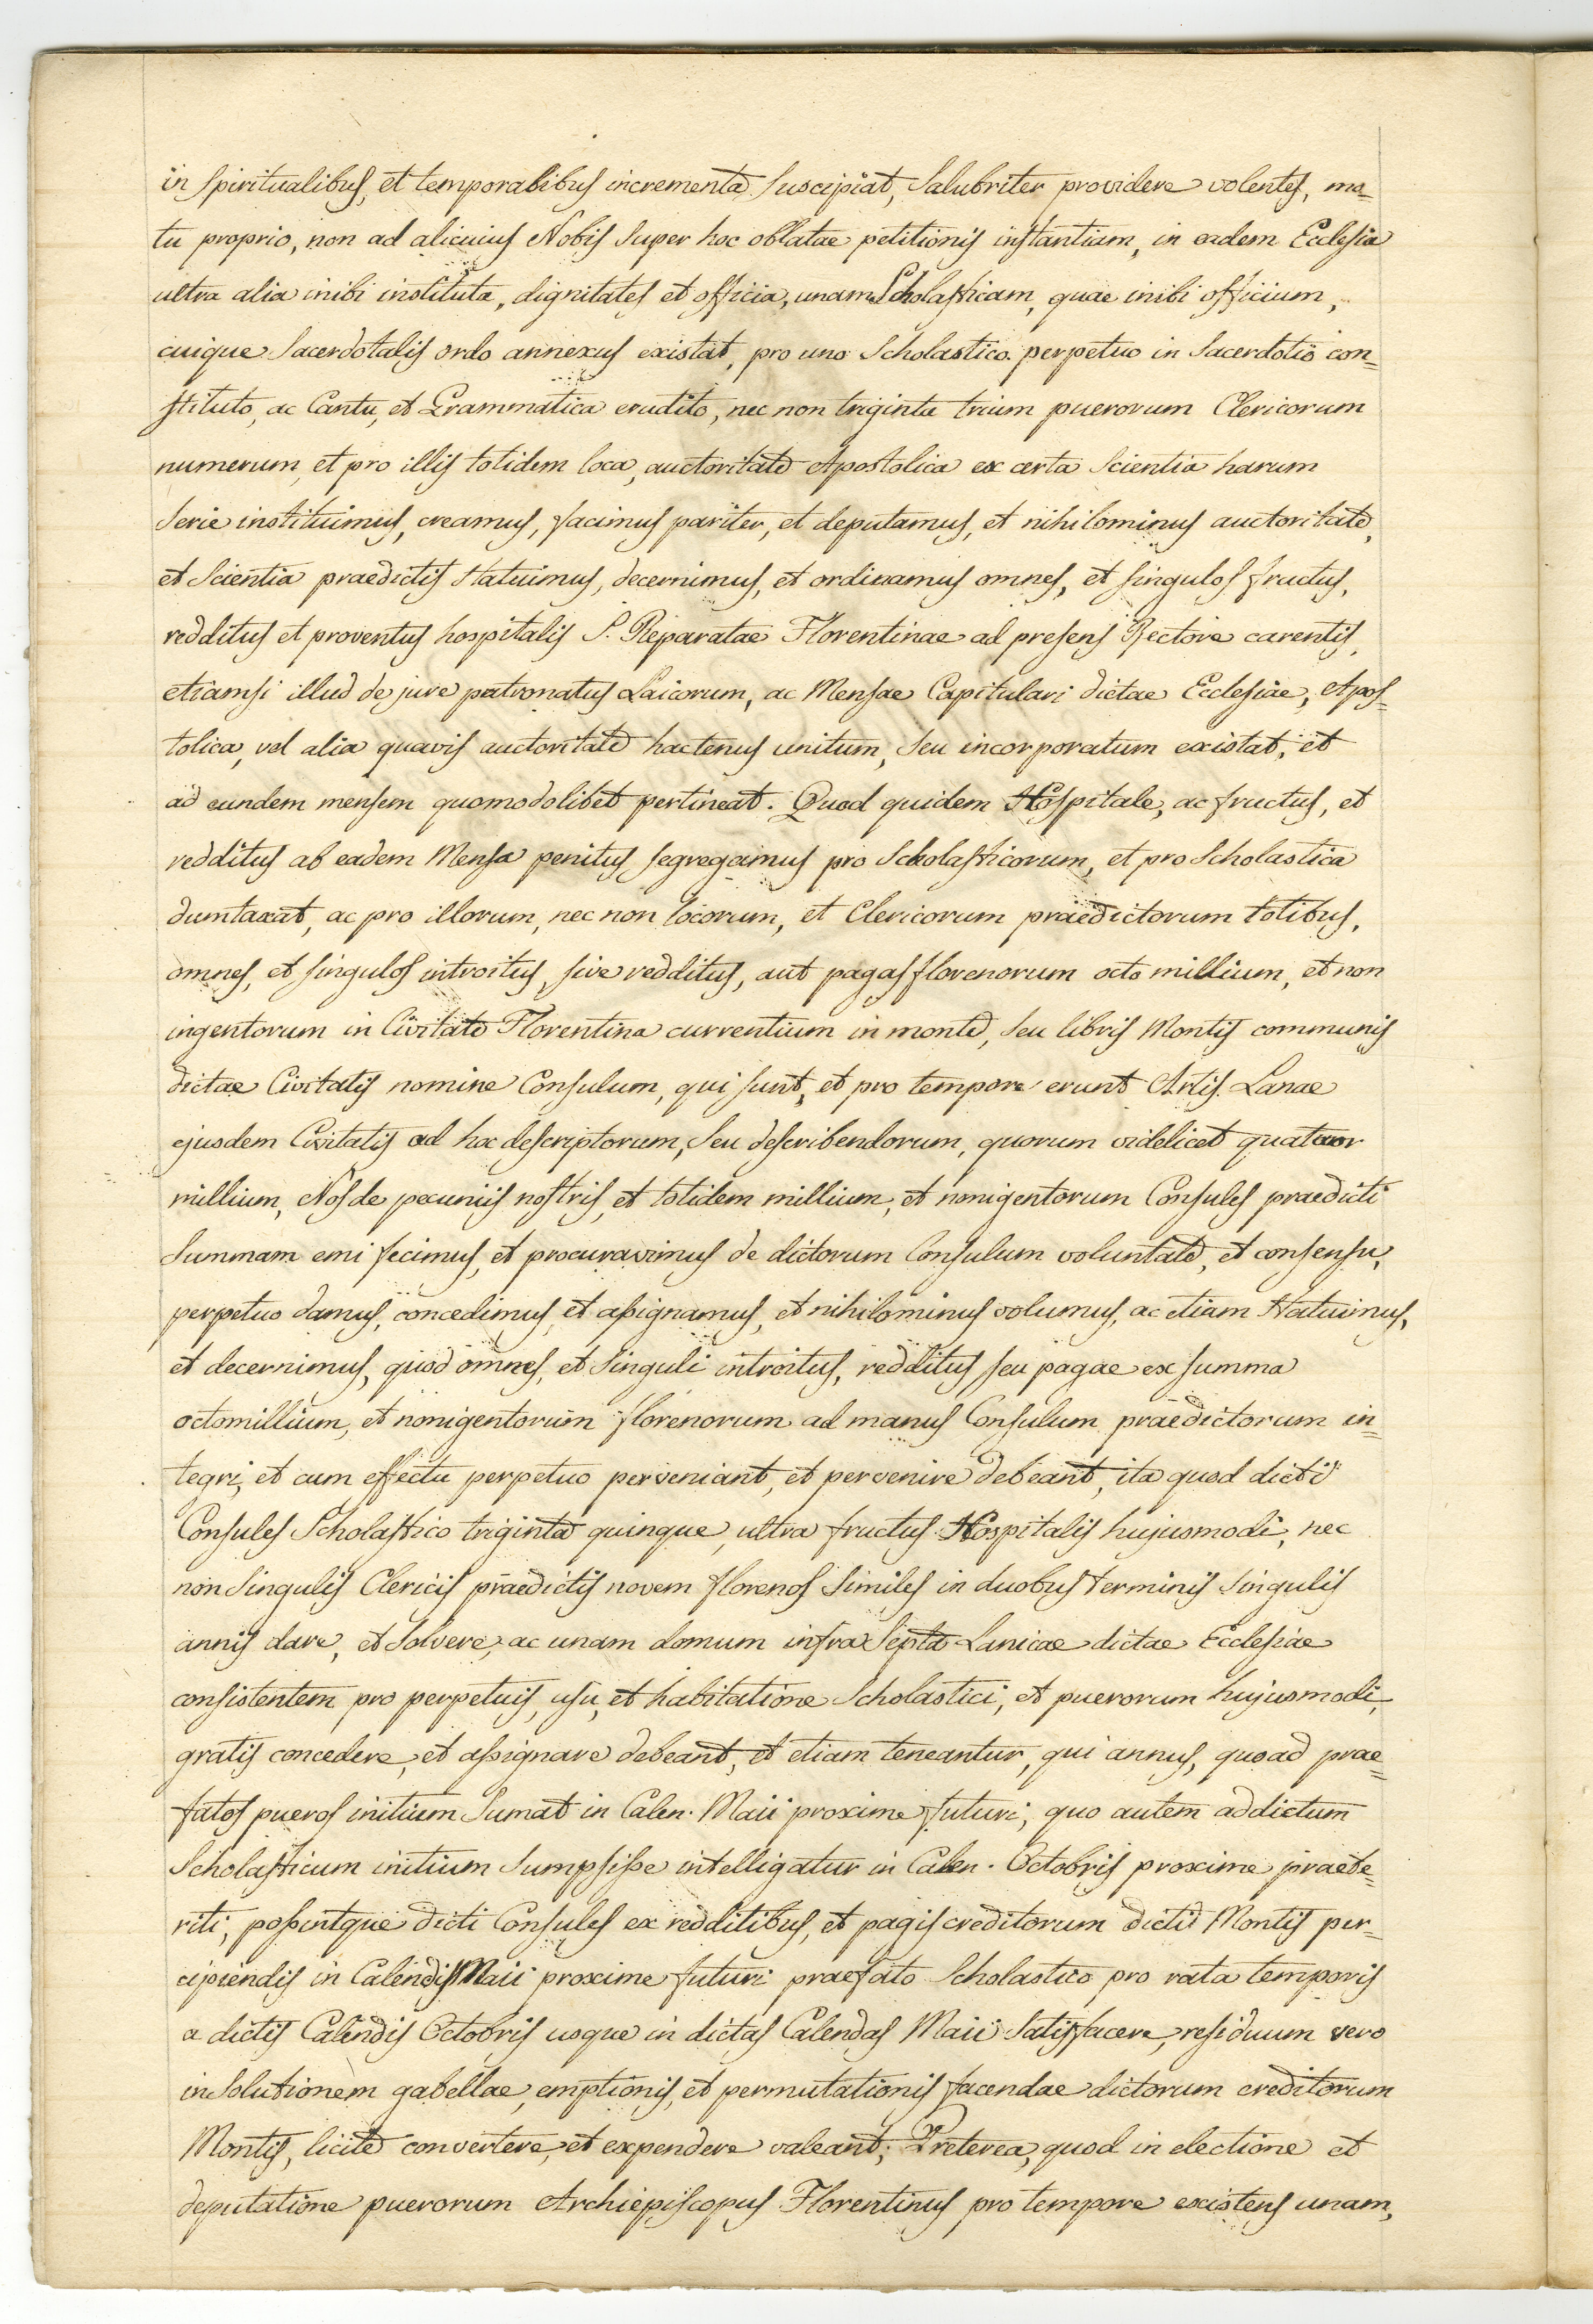 in Spiritualibus, et temporalibus incrementa suscipiat, salubriter providere volentes, mo-
tu proprio, non ad alicuius Nobis super hoc oblatae petitionis instantiam, in eadem Ecclesia
ultra alia inibi instituta, dignitates et officia, unam Scholasticam, quae inibi officium,
cuique Sacerdotalis ordo annexus existat, pro uno Scholastico perpetuo in Sacerdotio con=
stituto, ac Cantu, et Grammatica erudito, nec non triginta trium puerorum Clericorum
numerum, et pro illis totidem loca, auctoritate Apostolica ex certa Scientia harum
Serie instituimus, creamus, facimus pariter, et deputamus, et nihilominus auctoritate,
et Scientia praedictis Statuimus, decernimus, et ordinamus omnes, et singulos fructus,
redditus et proventus hospitalis S. Reparatae Florentinae ad presens Rectore carentis,
etiamsi illud de jure patronatus Laicorum, ac Mensae Capitulari dictae Ecclesiae, Apos-
tolica, vel alia quavis auctoritate hactenus unitum, seu incorporatum existat, et
ad eundem mensem quomodolibet pertineat. Quod quidem Hospitale, ac fructus, et
redditus ab eadem Mensa penitus segregamus pro Scholasticorum, et pro Scholastica
dumtaxat, ac pro illorum, nec non locorum, et Clericorum praedictorum totibus,
omnes, et singulos introitus, sive redditus, aut pagas florenorum octo millium, et non
ingentorum in Civitate Florentina currentium in monte, seu libris Montis communis
dictae Civitatis nomine Consulum, qui sunt, et pro tempore erunt Artis Lanae
ejusdem Civitatis ad hoc descriptorum, seu describendorum, quorum videlicet quatuor
millium, Nos de pecuniis nostris, et totidem millium, et nonigentorum Consules praedicti
Summam emi fecimus, et procuravimus de dictorum Consulum voluntate, et consensu,
perpetuo damus, concedimus, et assignamus, et nihilominus volumus, ac etiam Statuimus,
et decernimus, quod omnes, et singuli introitus, redditus seu pagae ex summa
octomillium, et nonigentorum florenorum ad manus Consulum praedictorum in=
tegri, et cum effectu perpetuo perveniant, et pervenire debeant, ita quod dicti
Consules Scholastico triginta quinque, ultra fructus Hospitalis hujusmodi, nec
non Singulis Clericis praedictis novem florenos similes in duobus terminis singulis
annis dare, et solvere, ac unam domum infra Septa Lanicae dictae Ecclesiae
consistentem pro perpetuis, usu, et habitatione Scholastici, et puerorum hujusmodi,
gratis concedere, et assignare debeant, et etiam teneantur, qui annus, quoad prae=
fatos pueros initium Sumat in Calen. Maii proxime futuri, quo autem ad dictum
Scholasticum initium Sumpsisse intelligatur in Calen. Octobris proxime praete=
riti, possintque dicti Consules ex redditibus, et pagis creditorum dicti Montis per-
cipiendis in Calendis Maii proxime futuri praefato Scholastico pro rata temporis
a dictis Calendis Octobris usque in dictas Calendas Maii Satisfacere, residuum vero
in Solutionem gabellae, emptionis, et permutationis facendae dictorum creditorum
Montis, licite convertere, et expendere valeant; Preterea, quod in electione et
deputatione puerorum Archiepiscopus Florentinus pro tempore existens unam,